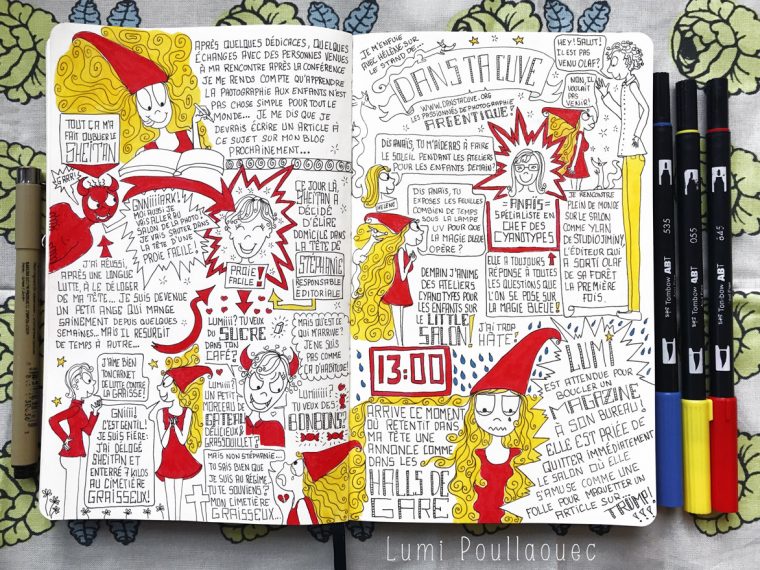 APRÈS QUELQUES DÉDICACES, QUELQUES
ÉCHANGES AVEC DES PERSONNES VENUES
À MA RENCONTRE APRÈS LA CONFÉRENCE
JE ME RENDS COMPTE QU'APPRENDRE
LA PHOTOGRAPHIE AUX ENFANTS N'EST
PAS CHOSE SIMPLE POUR TOUT LE
MONDE... JE ME DIS QUE JE
DEVRAIS ÉCRIRE UN ARTICLE À
CE SUJET SUR MON BLOG
PROCHAINEMENT...
TOUT ÇA M'A
FAIT OUBLIER LE
SHEÏTAN
GNIIIIARK!
MOI AUSSI JE
VAIS ALLER AU
SALON DE LA PHOTO!
JE VAIS SAUTER DANS
LA TÊTE D'UNE
PROIE FACILE!
PROIE
FACILE!
CE JOUR LÀ
SHEÏTAN A
DÉCIDÉ
D'ÉLIRE
DOMICILE DANS
LA TÊTE DE
STÉPHANIE
RESPONSABLE
ÉDITORIALE!
J'AI RÉUSSI,
APRÈS UNE LONGUE
LUTTE, À LE DÉLOGER
DE MA TÊTE... JE SUIS DEVENUE
UN PETIT ANGE QUI MANGE
SAINEMENT DEPUIS QUELQUES
SEMAINES... MAIS IL RESURGIT
DE TEMPS À AUTRE...
LUMIIII? TU VEUX
DU SUCRE
DANS TON
CAFÉ?
MAIS QU'EST CE
QUI M'ARRIVE?
JE NE SUIS
PAS COMME
ÇA D'HABITUDE!
J'AIME BIEN
TON CARNET
DE LUTTE CONTRE
LA GRAISSE!
GNIIII!
C'EST GENTIL!
JE SUIS FIÈRE:
J'AI DÉLOGÉ
SHEÏTAN ET
ENTERRÉ 7 KILOS
AU CIMETIÈRE
GRAISSEUX!
LUMIIII?
UN PETIT
MORCEAU DE
GATEAU
DÉLICIEUX &
GRASSOUILLET?
LUMIIIII?
TU VEUX DES
BONBONS?
MAIS NON STÉPHANIE...
TU SAIS BIEN QUE
JE SUIS AU RÉGIME
TU TE SOUVIENS?
MON CIMETIÈRE
GRAISSEUX...
JE M'ENFUIE
AVEC HÉLÈNE SUR
LE STAND DE...
DANS TA CUVE
WWW.DANSTACUVE.ORG
LES PASSIONNÉS DE PHOTOGRAPHIE
ARGENTIQUE!
HEY! SALUT!
IL EST PAS
VENU OLAF?
NON, IL
VOULAIT PAS
VENIR!
DIS ANAÏS, TU M'AIDERAS À FAIRE
LE SOLEIL PENDANT LES ATELIERS
POUR LES ENFANTS DEMAIN?
HÉLÈNE
DIS ANAÏS, TU
EXPOSES LES FEUILLES
COMBIEN DE TEMPS
SOUS LA LAMPE
UV POUR QUE
LA MAGIE BLEUE
OPÈRE?
=ANAÏS=
SPÉCIALISTE EN
CHEF DES
CYANOTYPES
JE RENCONTRE
PLEIN DE MONDE
SUR LE SALON
COMME YLAN
DE STUDIOJIMINY,
L'ÉDITEUR QUI
A SORTI OLAF
DE SA FORÊT
LA PREMIÈRE
FOIS
ELLE A TOUJOURS
RÉPONSE À TOUTES
LES QUESTIONS QUE
L'ON SE POSE SUR
LA MAGIE BLEUE!
DEMAIN J'ANIME
DES ATELIERS
CYANOTYPES POUR
LES ENFANTS SUR
LITTLE
SALON!
J'AI TROP
HÂTE!
13:00
ARRIVE CE MOMENT
OÙ RETENTIT DANS
MA TÊTE UNE
ANNONCE COMME
DANS LES
HALLS DE
GARE
LUMI
EST ATTENDUE POUR
BOUCLER UN
MAGAZINE
À SON BUREAU!
ELLE EST PRIÉE DE
QUITTER IMMÉDIATEMENT
LE SALON OÙ ELLE
S'AMUSE COMME UNE
FOLLE POUR MAQUETTER UN
ARTICLE SUR...
TRÜMP!
535
055
845
Tombow ABT
Tombow ABT
Tombow ABT
Lumi Poullaouec